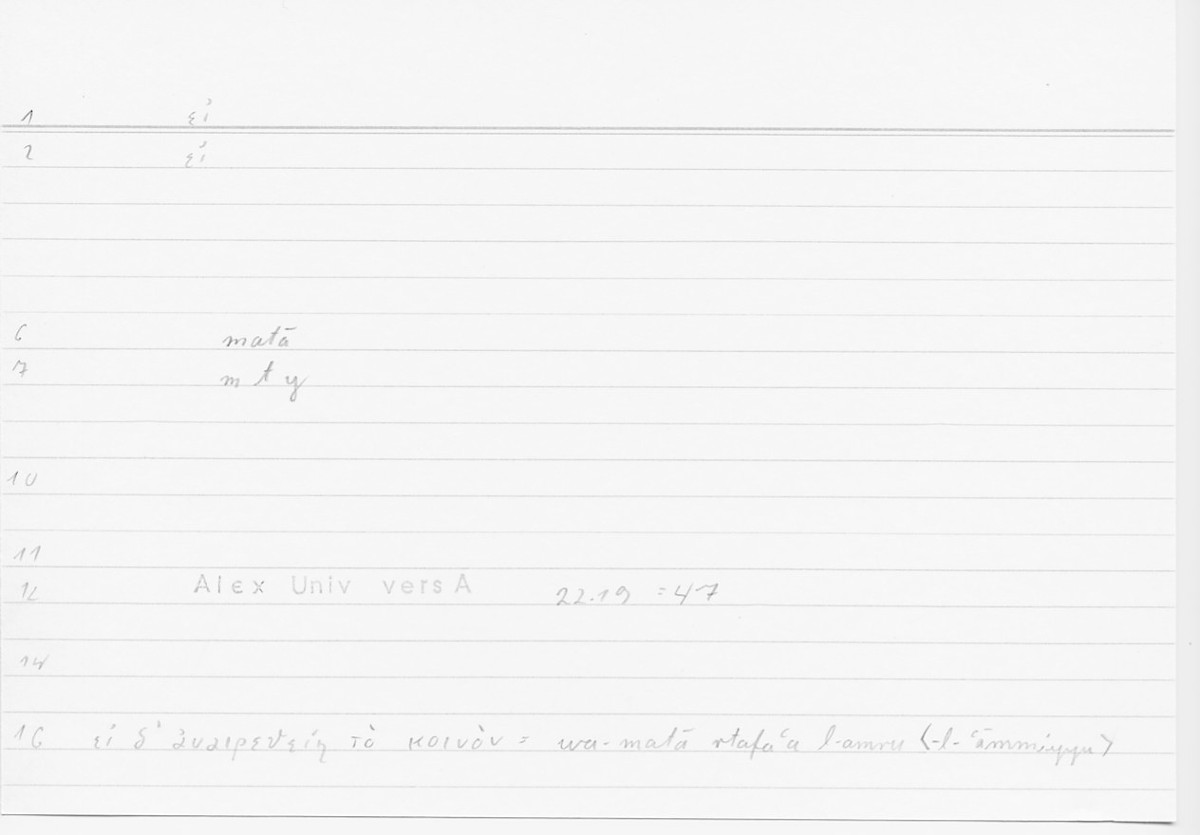 1 εἰ
2 εἰ
6 matā
7 m t y
10
11
12 Alex Univ vers A 22.19 = 47
14
16 εἰ δ' ἀναιρεθείη τὸ κοινὸν = wa-matā rtafaʿa l-amru <-l-ʿāmmiyyu>